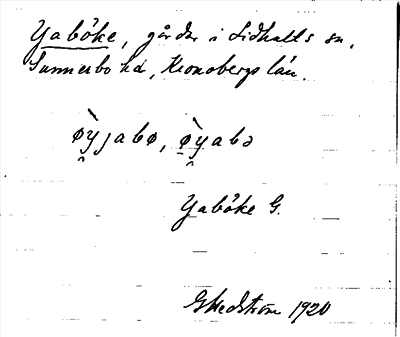 Yaböke, gårdar i Lidhults sn,
Sunnerbo hd, Kronobergs län.
ø̀y̯jabø, ø̀y̯abə
Yaböke G.
GHedström 1920